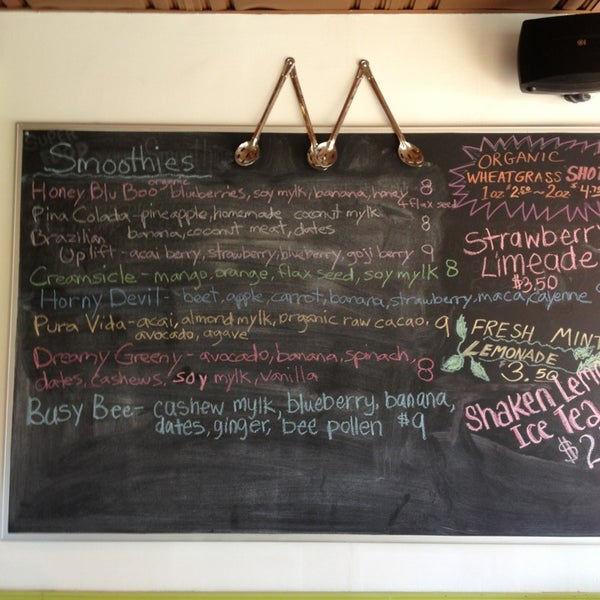 Smoothies
Honey Blu Boo - organic blueberries, soy mylk, banana, honey 8
& flax seed
Pina Colada - pineapple, homemade coconut mylk 8
banana, coconut meat, dates
Brazilian
Uplift - acai berry, strawberry, blueberry, goji berry 9
Creamsicle - mango, orange, flax seed, soy mylk 8
Horny Devil - beet, apple, carrot, banana, strawberry, maca, cayenne
Pura Vida - acai, almond mylk, organic raw cacao, 9
avocado, agave
Dreamy Greeny - avocado, banana, spinach,
dates, cashews, soy mylk, vanilla 8
Busy Bee - cashew mylk, blueberry, banana,
dates, ginger, bee pollen $9
ORGANIC
WHEATGRASS SHOT
1oz $2.50 ~ 2oz $4.75
Strawberry
Limeade
$3.50
FRESH MINT
LEMONADE
$3.50
Shaken Lemon
Ice Tea
$2